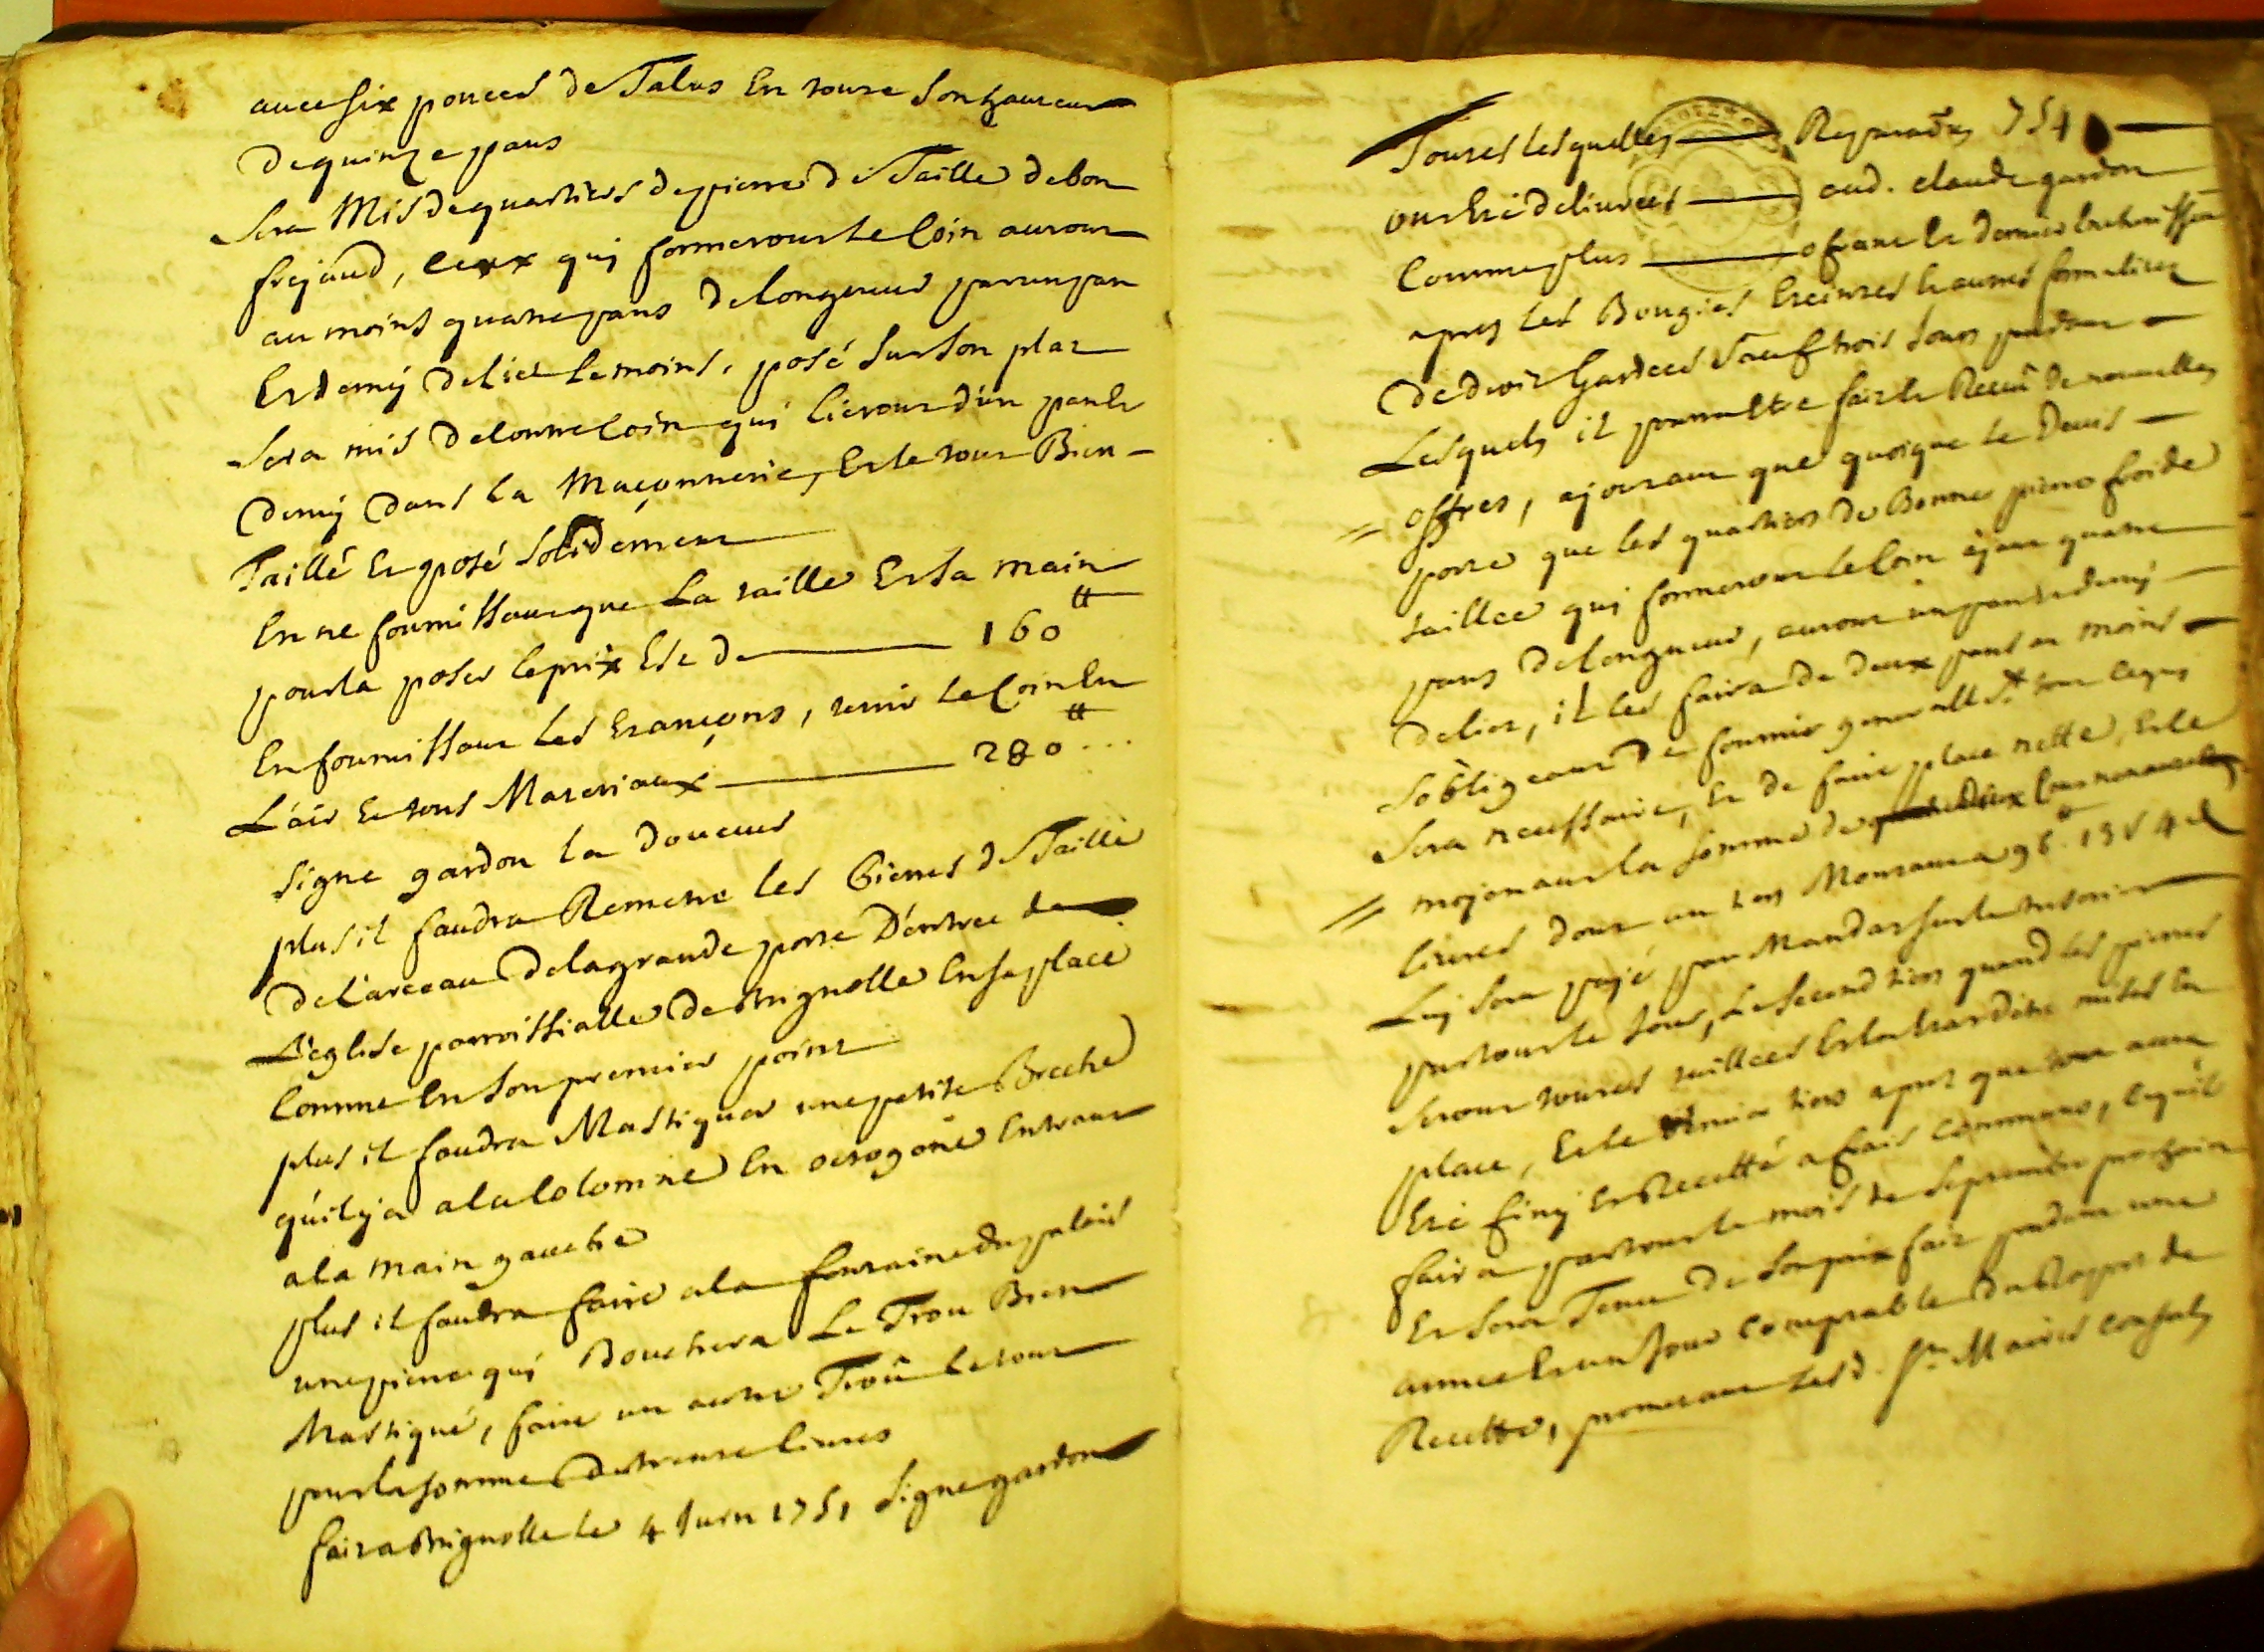 avec six pouces de Talus En toute son hauteur
de quinze pans
sera Mis de quartiers de pierre de Taille de bon
frejaud, ceux qui formeront le Coin auront
au moins quatre pans de longueur par un pan
Et demÿ de lict le moins, posé sur son plat
sera mis de contre coin qui lieront d'un pan Et
demÿ dans la Maçonnerie, Et le tout Bien
Taillé Et posé Solidement
En ne fournissant que La taille Et sa main
pour la poser le prix Est de 160 ₶
En fournissant Les Etançons, tenir Le Coin En
L'air Et tous Materiaux 280 ₶ ...
signe gardon la douceur
plus il faudra Remettre les Pierres de Taille
de l'arceau de la grande porte D'entrée de
L'eglise parroissialle de Brignolle En sa place
Comme En son premier point
plus il faudra Mastiquer une petite Breche
qu'il y a a la Colomne En octogone Entrant
a la main gauche
plus il faudra faire a la fontaine du palais
une pierre qui Bouchera Le Trou Bien
Mastiqué, faire un autre Troû le tout
pour la somme de trente livres
fait a Brignolle le 4 Juin 1751 signe gardon
Toutes lesquelles Reparaôns 754
ont Eté delivrées aud. claude gardon
Comme plus ofrant Et dernier Encherisseur
apres les Bougies Eteintes Et autres formalités
de droit Gardées sauf trois Jours pendant
Lesquels il pourra Etre fait Et Recû de nouvelles
offres, ajoutant que quoique le Devis
porte que les quartiers de Bonne pierre froide
taillée qui formeront le Coin ayant quatre
pans de longueur, auront un pan Et demÿ
de lict, il les faira de deux pans au moins
s'obligeant de fournir generallt tout ce qui
sera necessaire, Et de faire place nette, Et le
mojenant la somme de deux Cens nonante
livres dont un tiers Montant a 96 ₶ 13 s 4 d
Luy sera payé par Mandat sur le tresorier
partout le Jour, Le second tiers quand les pierres
seront toutes taillées Et la mises En
place, Et le dernier tiers apres que tout aura
Eté finy Et Recetté a frais communs, ce qu'il
faira partout le mois de septembre prochain
Et sera Tenu de son prix fait pendant une
année Et un Jour Comptable du Raport de
Recette, prometant Lesd. Srs Maires Consuls